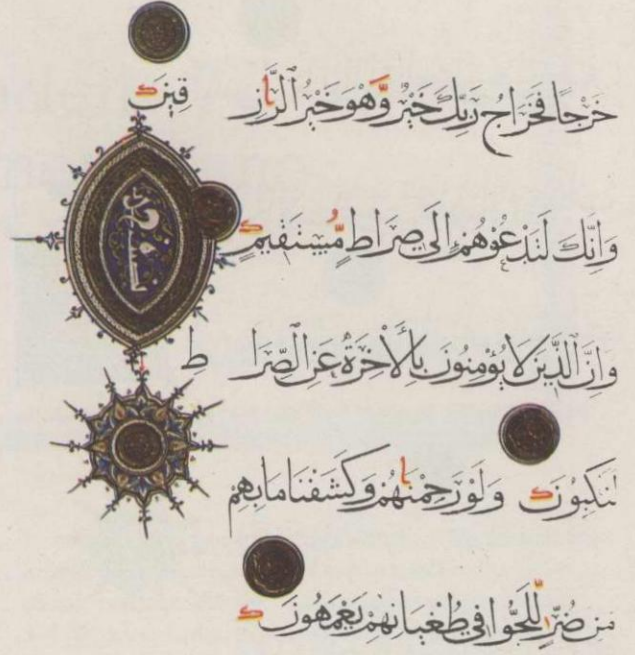 خَرْجًا فَخَرَاجُ رَبِّكَ خَيْرٌ وَّهُوَ خَيْرُ الرَّازِ
قِينَ
وَاِنَّكَ لَتَدْعُوْهُمْ اِلَى صِرَاطٍ مُّسْتَقِيْمٍ
وَاِنَّ الَّذِيْنَ لَا يُؤْمِنُوْنَ بِالْاٰخِرَةِ عَنِ الصِّرَا
طِ
لَنٰكِبُوْنَ وَلَوْ رَحِمْنٰهُمْ وَكَشَفْنَا مَا بِهِمْ
مِنْ ضُرٍّ لَّلَجُّوْا فِي طُغْيَانِهِمْ يَعْمَهُوْنَ